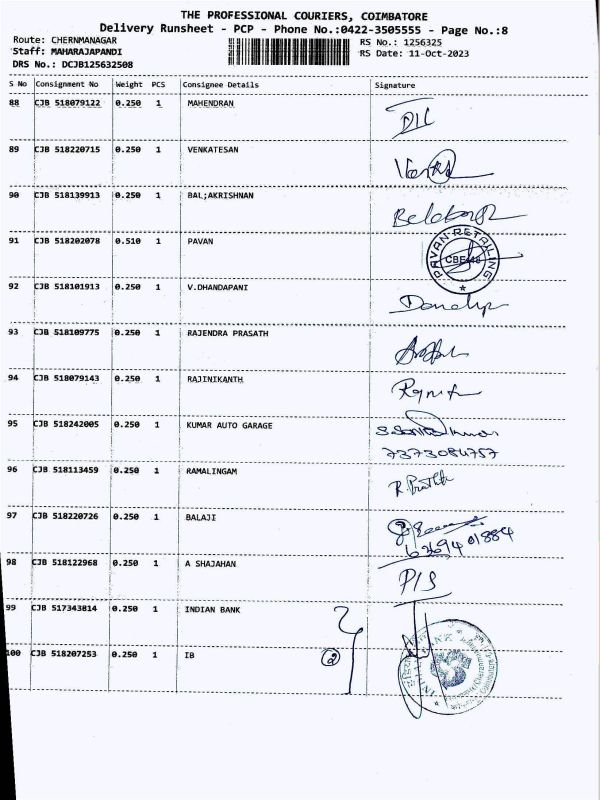 THE PROFESSIONAL COURIERS, COIMBATORE
Delivery Runsheet - PCP - Phone No.:0422-3505555 - Page No.:8
Route: CHERNMANAGAR RS No.: 1256325
Staff: MAHARAJAPANDI RS Date: 11-Oct-2023
DRS No.: DCJB125632508
S No Consignment No Weight PCS Consignee Details Signature
88 CJB 518079122 0.250 1 MAHENDRAN
89 CJB 518220715 0.250 1 VENKATESAN
90 CJB 518139913 0.250 1 BAL;AKRISHNAN
91 CJB 518202078 0.510 1 PAVAN
PAVAN RETAILING
92 CJB 518101913 0.250 1 V.DHANDAPANI
93 CJB 518109775 0.250 1 RAJENDRA PRASATH
94 CJB 518079143 0.250 1 RAJINIKANTH
95 CJB 518242005 0.250 1 KUMAR AUTO GARAGE
7373084757
96 CJB 518113459 0.250 1 RAMALINGAM
97 CJB 518220726 0.250 1 BALAJI
98 CJB 518122968 0.250 1 A SHAJAHAN
P/S
99 CJB 517343814 0.250 1 INDIAN BANK
100 CJB 518207253 0.250 1 IB 2